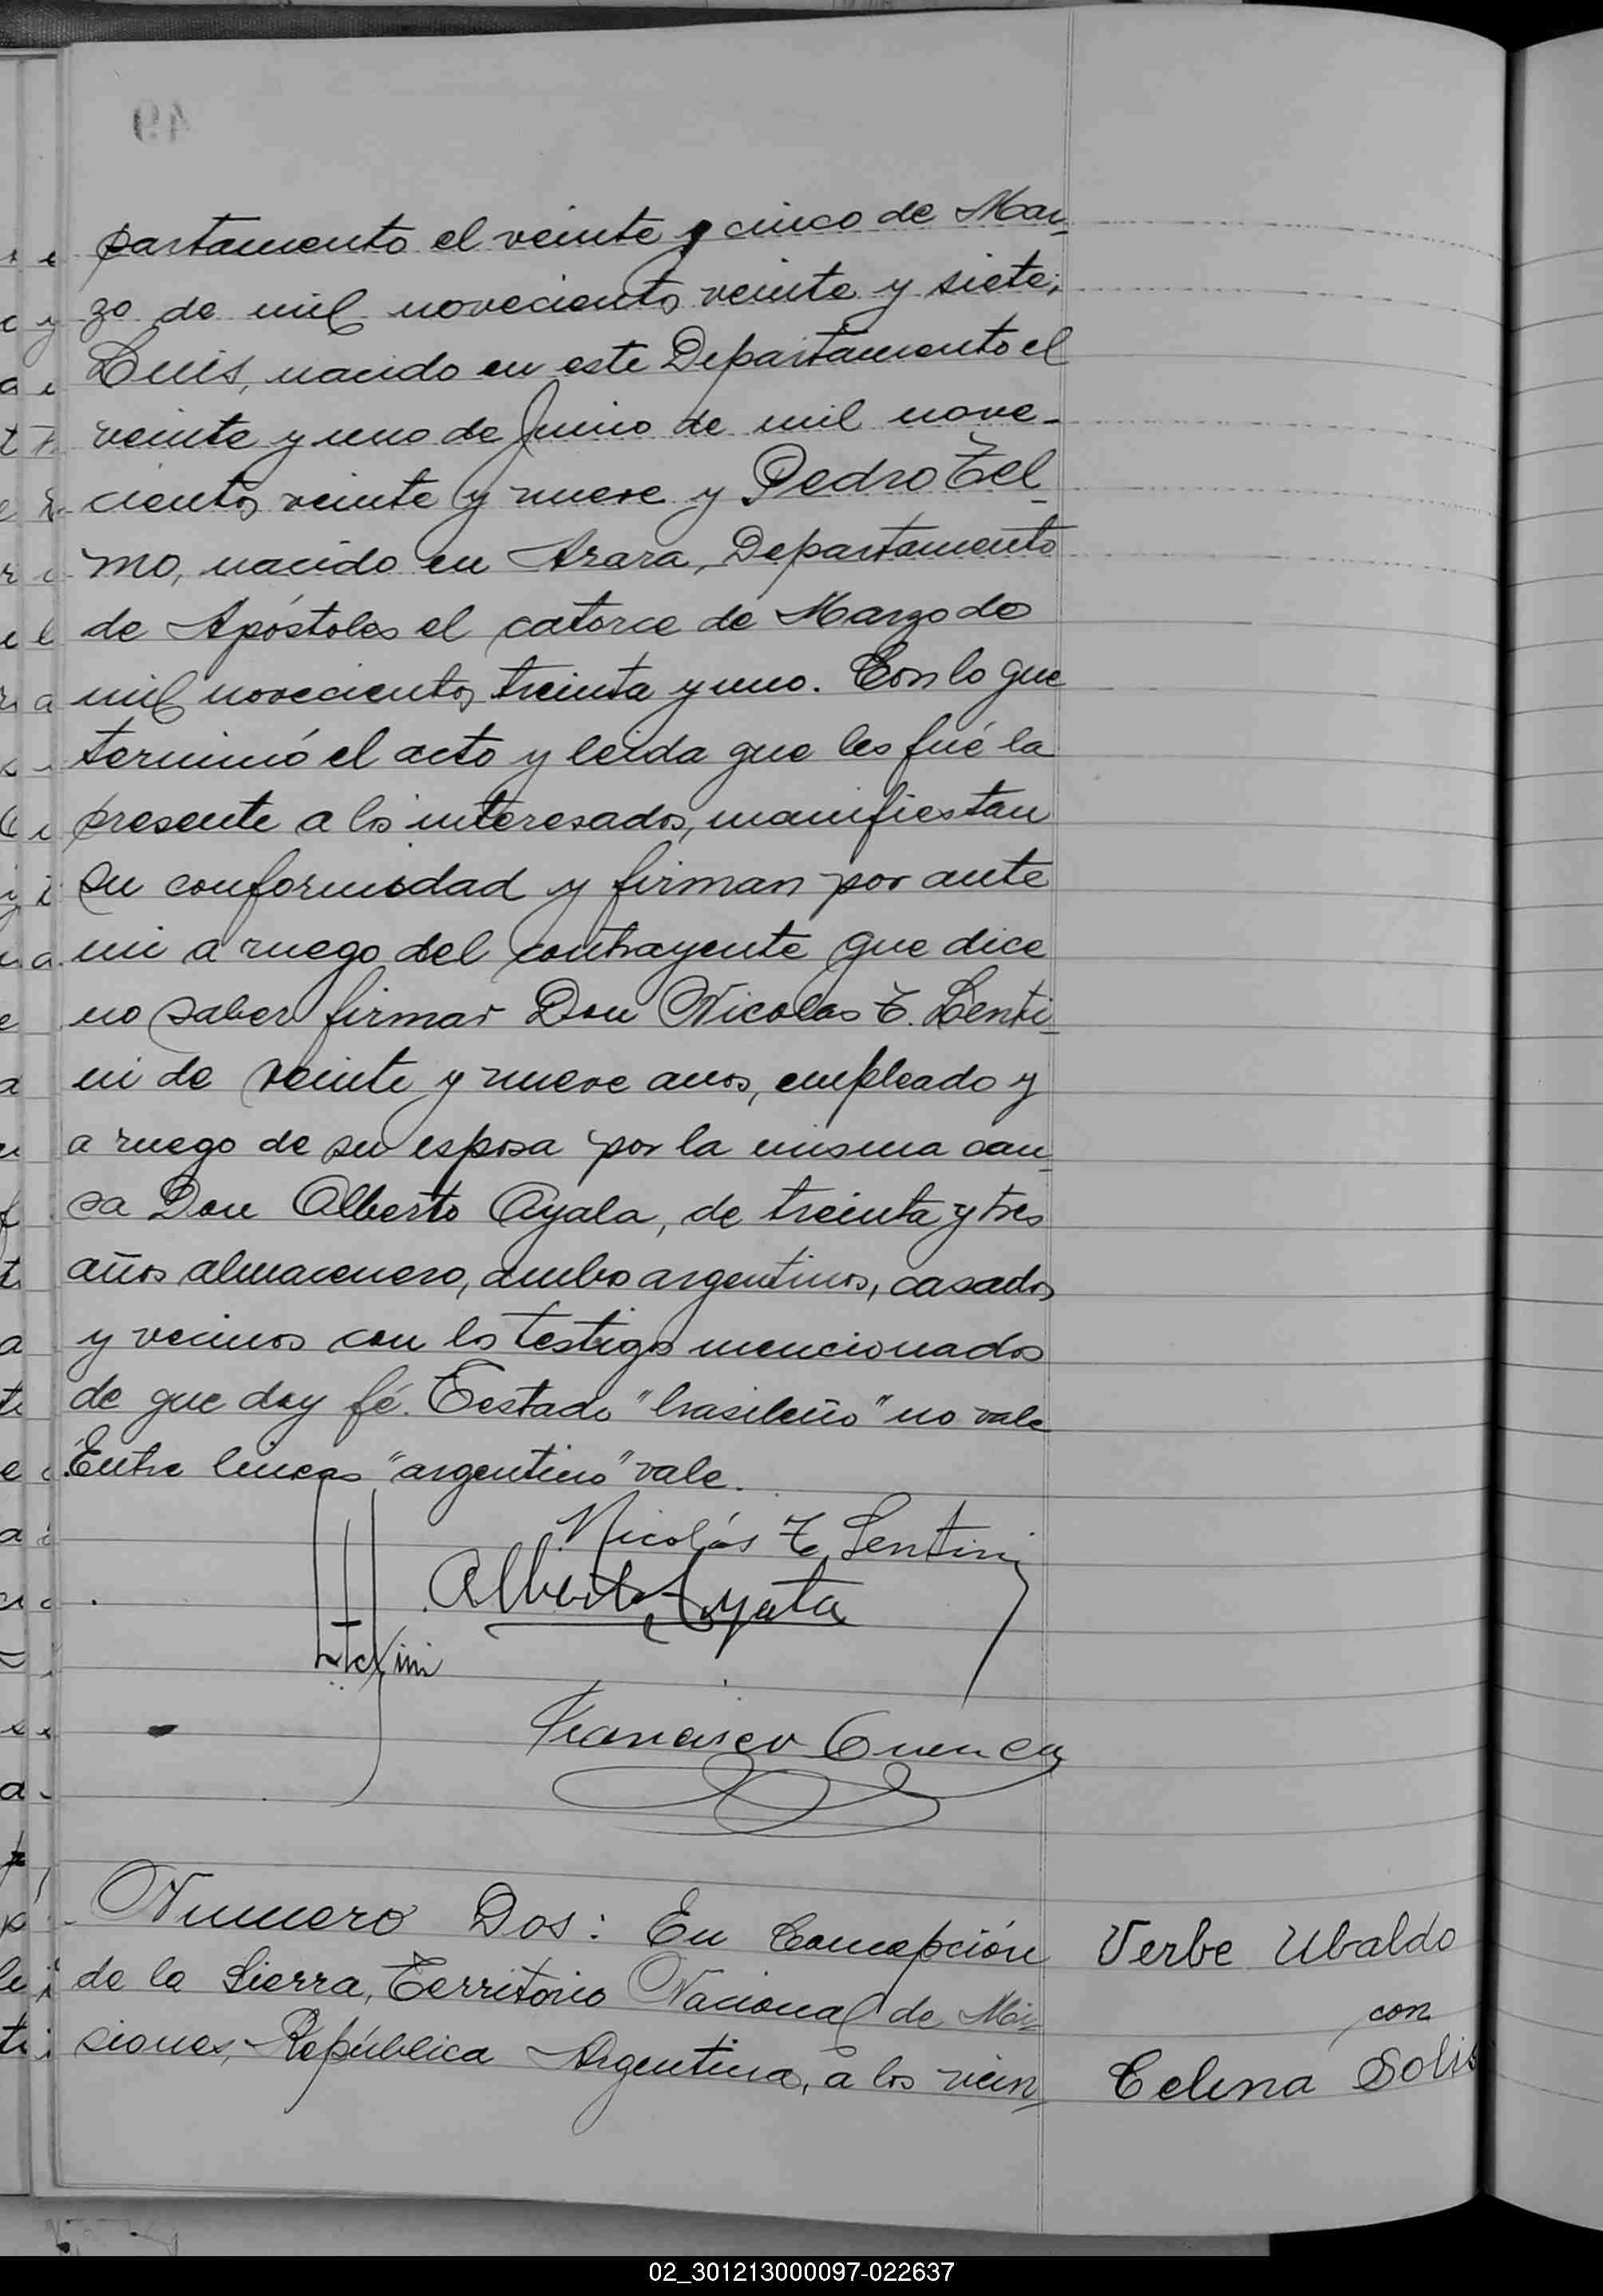 partamento el veinte y cinco de Mar-
zo de mil novecientos veinte y siete;
Luis, nacido en este Departamento el
veinte y uno de Junio de mil nove-
cientos veinte y nueve y Pedro Tel-
mo, nacido en Arara, Departamento
de Apóstoles el catorce de Marzo de
mil novecientos treinta y uno. Con lo que
terminó el acto y leida que les fué la
presente a los interesados, manifiestan
su conformidad y firman por ante
mi a ruego del contrayente que dice
no saber firmar Don Nicolas T. Lenti-
ni de veinte y nueve anos, empleado y
a ruego de su esposa por la misma cau-
sa Don Alberto Ayala, de treinta y tres
años almacenero, ambos argentinos, casados
y vecinos con los testigos mencionados
de que doy fé. Testado "brasileño" no vale
Entre lineas "argentino" vale.
Nicolás T. Lentini
Alberto Ayala
Francisco Cuenca
Numero Dos: En Concepción
de la Sierra, Territorio Nacional de Mi-
siones, República Argentina, a los vein-
Verbe Ubaldo
con
Celina Solis
02_301213000097-022637